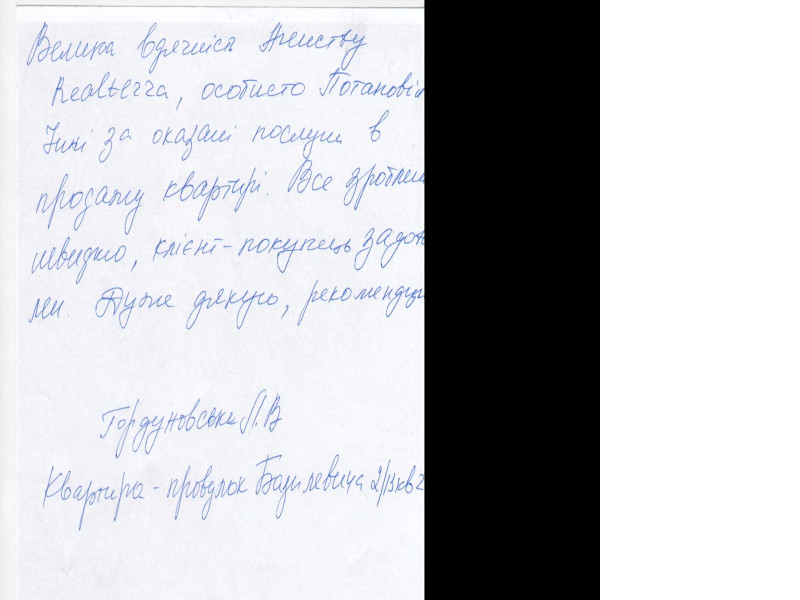 Велика вдячність Агенству
Realterra, особисто Потапові
Інні за оказані послуги в
продажу квартирі. Все зроблен
швидко, клієнт-покупець задов
ми. Дуже дякую, рекомендую
Гордуновська Л.В
Квартира - провулок Базилевича 2/13 кв 2